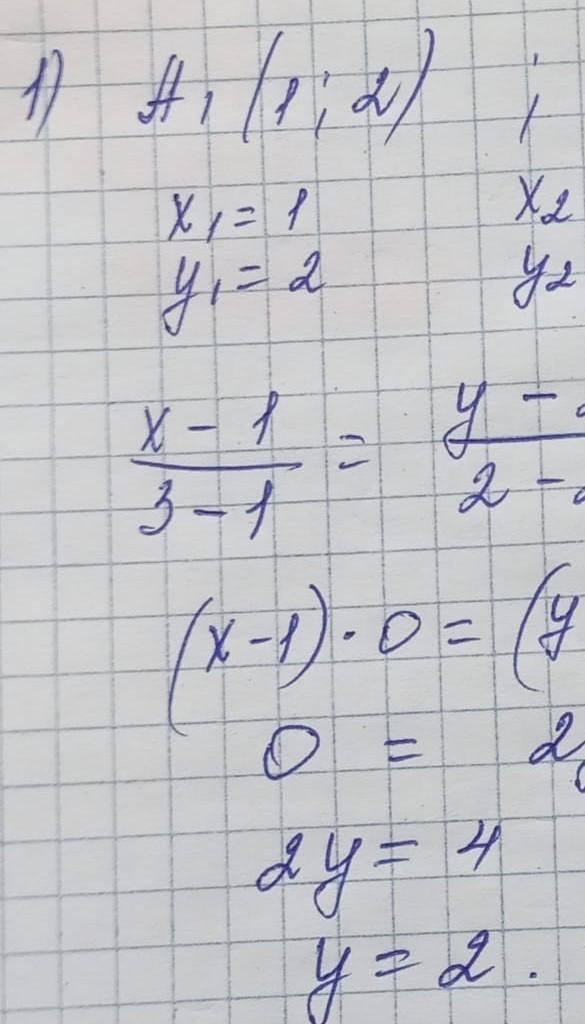 1) A₁ (1; 2) ;
x₁ = 1 x₂
y₁ = 2 y₂
x - 1 y -
3 - 1 = 2 -
(x-1) · 0 = (y
0 = 2y
2y = 4
y = 2.